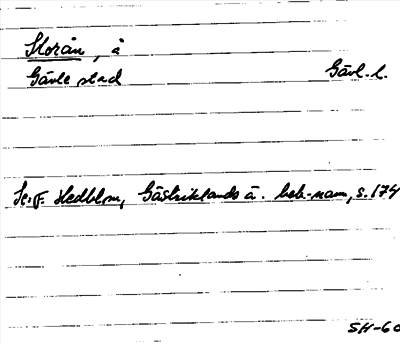 Storån, å
Gävle stad Gävl. l.
Se: F. Hedblom, Gästriklands ä. beb-namn, s. 174
SH-60